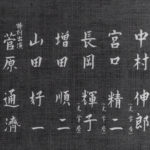 中村伸郎
宮口精二
文学座
長岡輝子
文学座
増田順二
山田好一
特別出演
菅原通濟